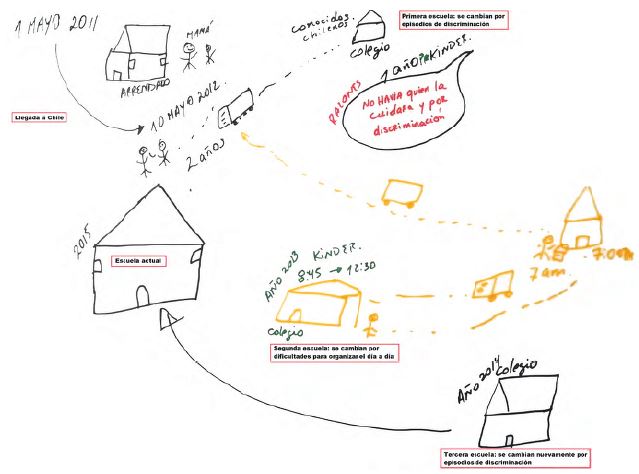 1 MAYO 2011
MAMÁ
ARRENDADO
Llegada a Chile
10 MAYO 2012.
2 años
conocidos
chilenos
colegio
Primera escuela: se cambian por
episodios de discriminación
1 año PreKINDER.
RAZONES
NO HAVIA quien la
cuidara y por
discriminación
7:00am
7 am.
2015
Escuela actual
Año 2013 KINDER.
8:45 → 12:30
colegio
Segunda escuela: se cambian por
dificultades para organizar el día a día
AÑO 2014 colegio
Tercera escuela: se cambian nuevamente por
episodios de discriminación